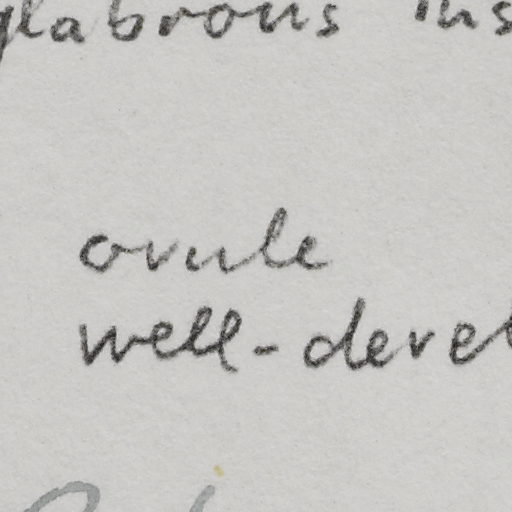 glabrous ins
ovule
well-devel